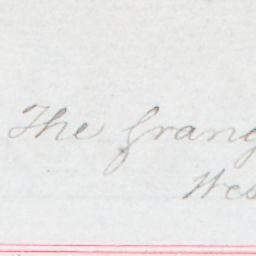 The Grang
Wes